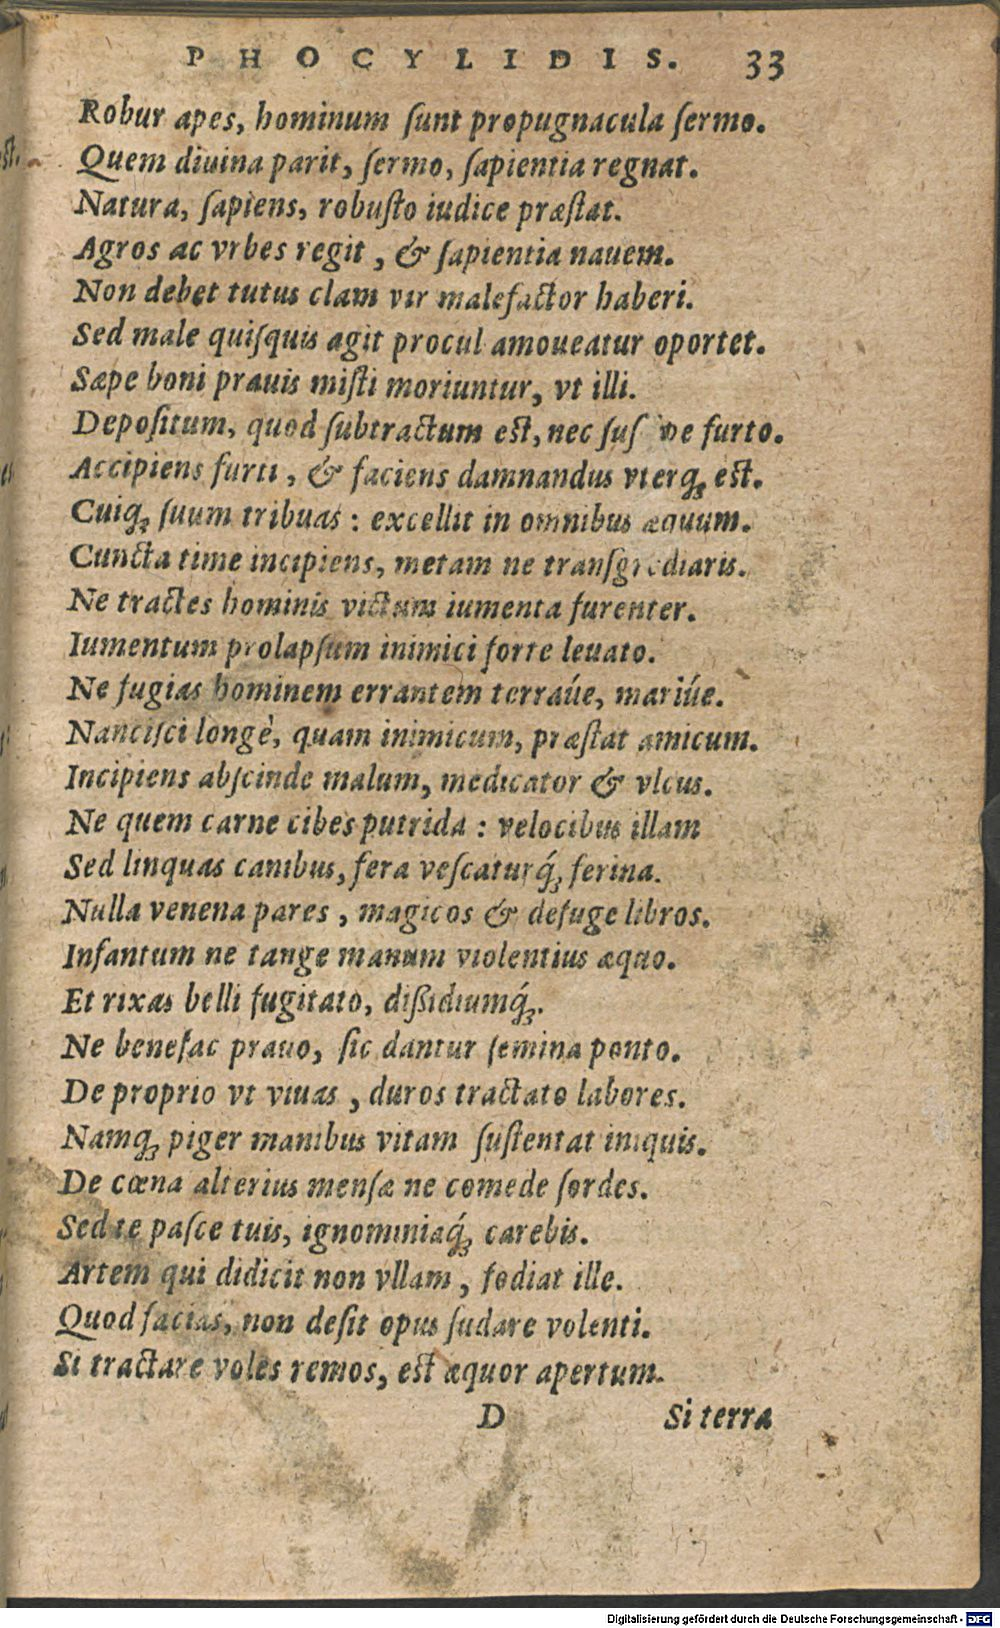 PHOCYLIDIS. 33
Robur apes, hominum ſunt propugnacula ſermo.
Quem diuina parit, ſermo, ſapientia regnat.
Natura, ſapiens, robuſto iudice præſtat.
Agros ac vrbes regit, & ſapientia nauem.
Non debet tutus clam vir malefactor haberi.
Sed male quiſquis agit procul amoueatur oportet.
Sæpe boni prauis miſti moriuntur, vt illi.
Depoſitum, quod ſubtractum eſt, nec ſuſ pe furto.
Accipiens furti, & faciens damnandus vterq; eſt.
Cuiq; ſuum tribuas: excellit in omnibus æquum.
Cuncta time incipiens, metam ne tranſgrediaris.
Ne tractes hominis victum iumenta furenter.
Iumentum prolapſum inimici forte leuato.
Ne fugias hominem errantem terraúe, mariúe.
Nanciſci longè, quam inimicum, præſtat amicum.
Incipiens abſcinde malum, medicator & vlcus.
Ne quem carne cibes putrida: velocibus illam
Sed linquas canibus, fera veſcaturq́; ferina.
Nulla venena pares, magicos & defuge libros.
Infantum ne tange manum violentius æquo.
Et rixas belli fugitato, dißidiumq́;.
Ne benefac prauo, ſic dantur ſemina ponto.
De proprio vt viuas, duros tractato labores.
Namq; piger manibus vitam ſuſtentat iniquis.
De cœna alterius menſæ ne comede ſordes.
Sed te paſce tuis, ignominiaq́; carebis.
Artem qui didicit non vllam, fodiat ille.
Quod facias, non deſit opus ſudare volenti.
Si tractare voles remos, eſt æquor apertum.
D Si terra
Digitalisierung gefördert durch die Deutsche Forschungsgemeinschaft - DFG